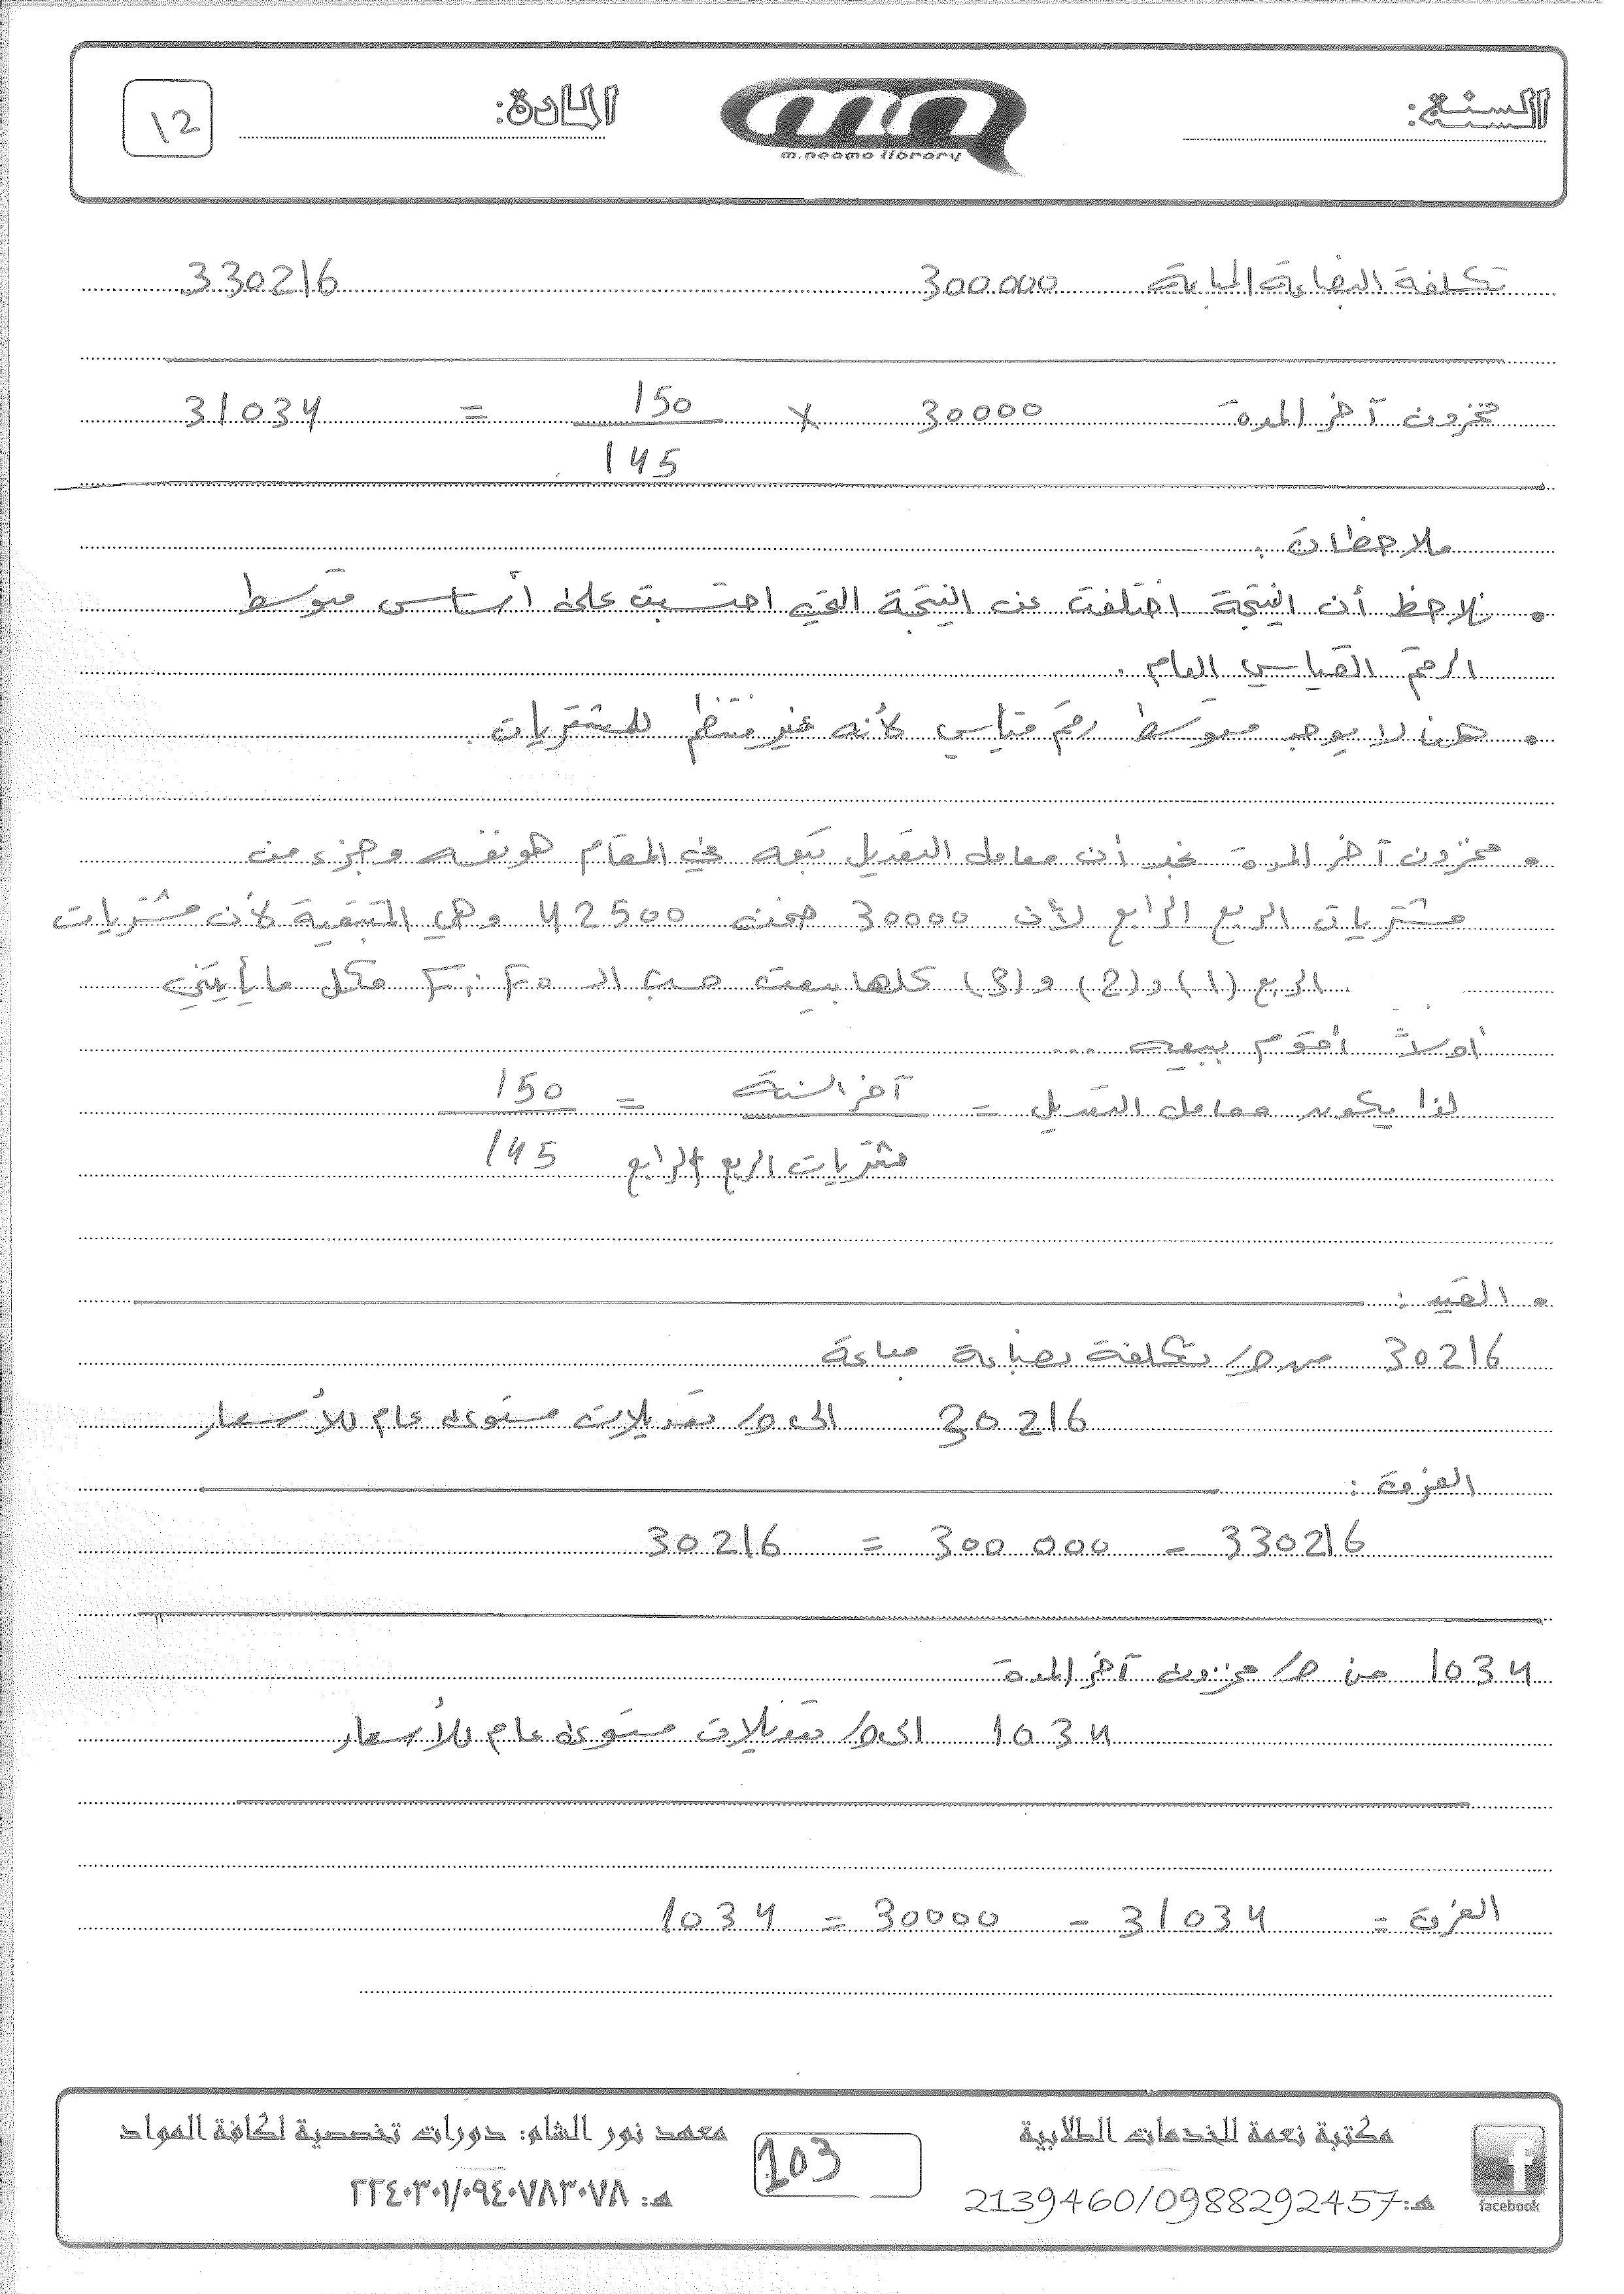 السنة:
المادة:
12
m.neama library
تكلفة البضاعة المباعة 300000 330216
مخزون آخر المدة 30000 × 150 = 31034
145
ملاحظات:
• نلاحظ أن النتيجة اختلفت عن النتيجة التي احتسبت على أساس متوسط
الرقم القياسي العام.
• هنا لا يوجد متوسط رقم قياسي لأنه غير منتظم للمشتريات.
• مخزون آخر المدة نجد أن معامل التعديل تبعه في المقام هو نفسه وجزء من
مشتريات الربع الرابع لأن 30000 ضمن 42500 وهي المتبقية لأن مشتريات
الربع (1) و(2) و(3) كلها بيعت حسب الـ F.i.F.o فكل ما يأتيني
أولاً أقوم ببيعه ...
لذا يكون معامل التعديل = آخر السنة = 150
مشتريات الربع الرابع 145
• القيد:
30216 من ح/ تكلفة بضاعة مباعة
30216 الى ح/ تعديلات مستوى عام للأسعار
الفرق:
330216 - 300 000 = 30216
1034 من ح/ مخزون آخر المدة
1034 الى ح/ تعديلات مستوى عام للأسعار
الفرق = 31034 - 30000 = 1034
facebook
مكتبة نعمة للخدمات الطلابية
هـ: 2139460/0988292457
103
معهد نور الشام: دورات تخصصية لكافة المواد
هـ: ٢٢٤٠٣٠١/٠٩٤٠٧٨٣٠٧٨